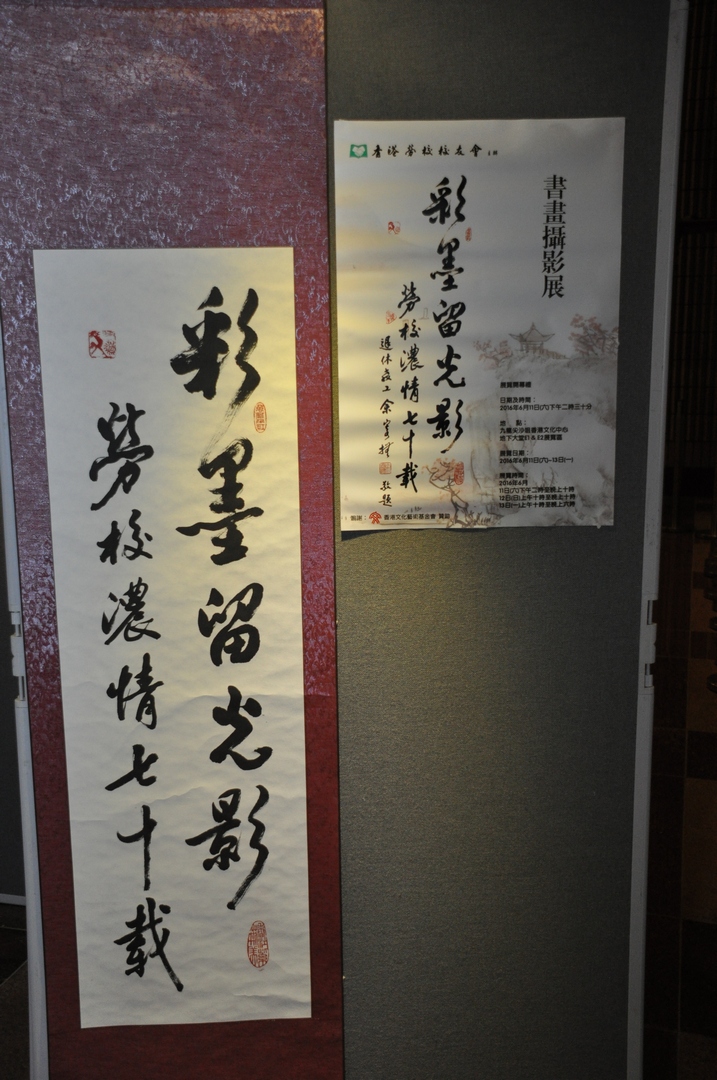 彩墨留光影
勞校濃情七十載
香港勞校校友會 主辦
書畫攝影展
彩墨留光影
勞校濃情七十載
退休教工
敬題
展覽開幕禮
日期及時間：
2016年6月11日(六)下午二時三十分
地　點：
九龍尖沙咀香港文化中心
地下大堂E1 & E2展覽區
展覽日期：
2016年6月11日(六)-13日(一)
展覽時間：
2016年6月
11日(六)下午二時至晚上十時
12日(日)上午十時至晚上十時
13日(一)上午十時至晚上六時
鳴謝：香港文化藝術基金會 贊助